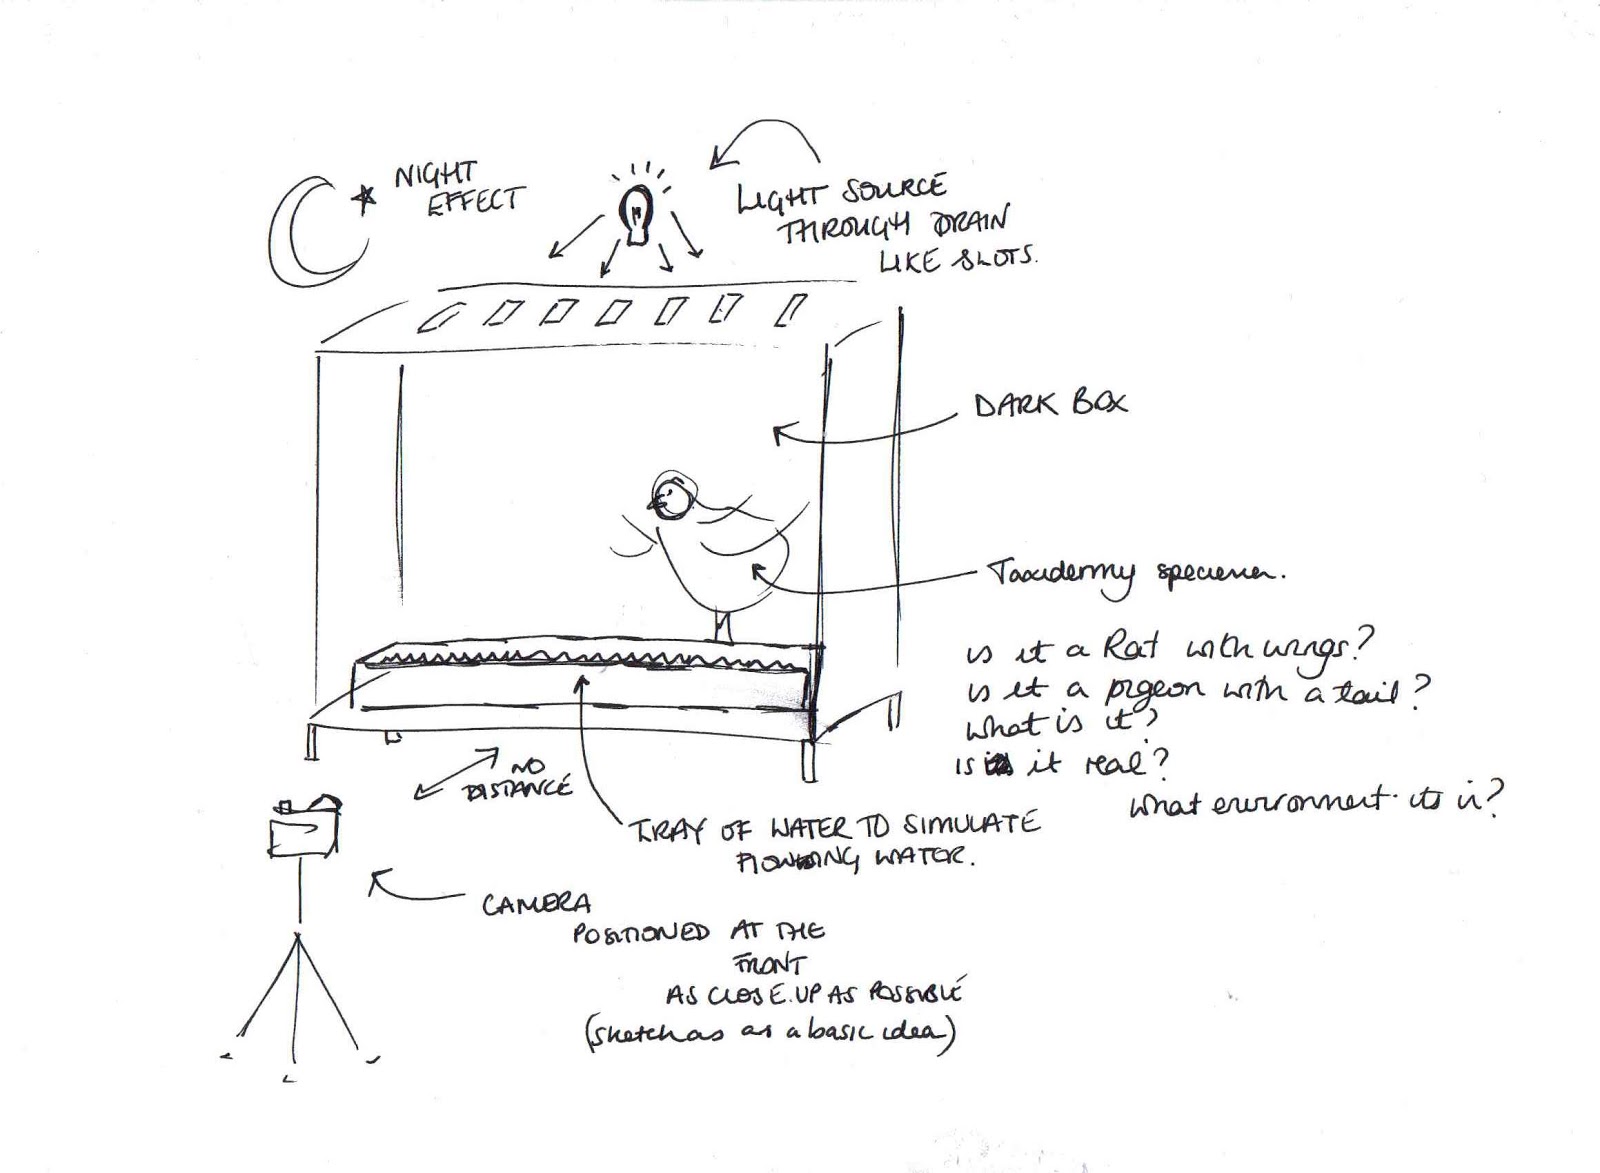 NIGHT
EFFECT
LIGHT SOURCE
THROUGH DRAIN
LIKE SLOTS.
DARK BOX
Taxidermy specimen.
is it a Rat with wings?
is it a pigeon with a tail?
What is it?
Is it real?
What environment its in?
NO
DISTANCE
TRAY OF WATER TO SIMULATE
FLOWING WATER.
CAMERA
POSITIONED AT THE
FRONT
AS CLOSE.UP AS POSSIBLE
(sketch as a basic idea)